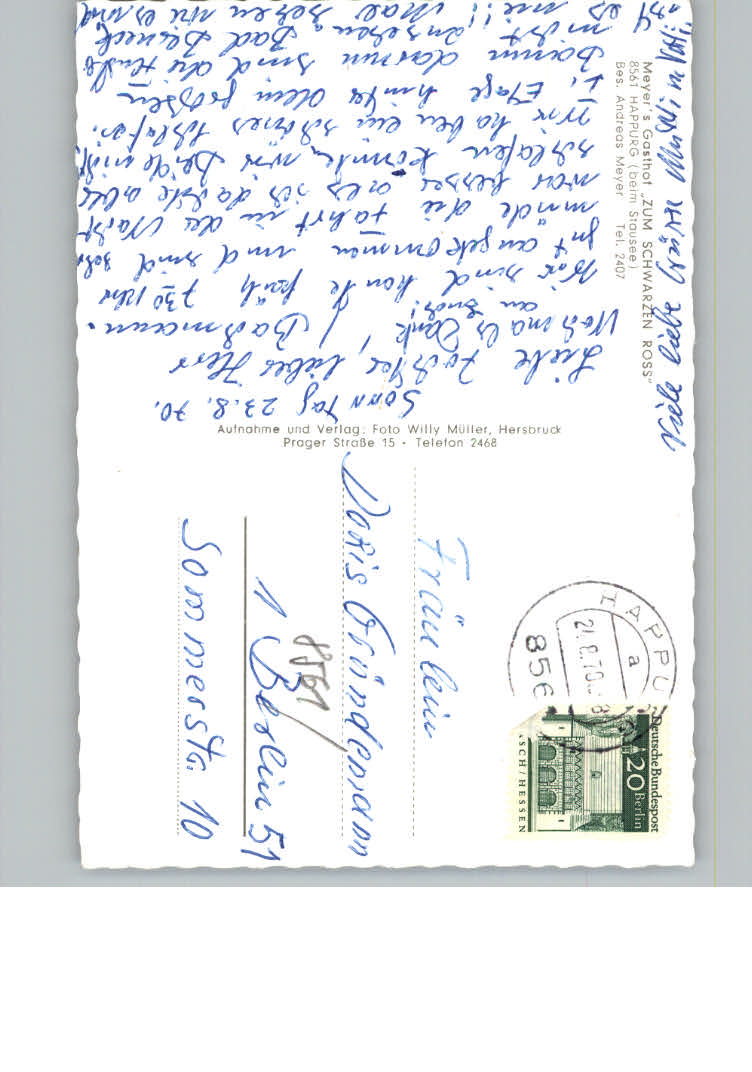 Sonntag 23.8.70.
Liebe Tochter, lieber Herr
Nochmals Dank, Bachmann.
am Ende!
Wir sind heute früh 7 30 Uhr
gut angekommen und sind sehr
müde die Fahrt in der Nacht
war besser als ich dachte alles
schlafen konnte, wir beide nicht.
Wir haben ein schönes Schlafzi.
I. Etage hinter dem grossen
Baum darum sind die
nicht anzusehen. Bad
es nie!! Mal sehen wie es wird
Viele liebe Grüsse Mutti u. Vati
Meyer's Gasthof „ZUM SCHWARZEN ROSS"
8561 HAPPURG (beim Stausee)
Bes. Andreas Meyer Tel. 2407
Aufnahme und Verlag: Foto Willy Müller, Hersbruck
Prager Straße 15 · Telefon 2468
Fräulein
Doris Gründemann
1 Berlin 51
8561
Sommerstr. 10
HAPPU
24.8.70
a
856
Deutsche Bundespost
20 Berlin
SCH/HESSEN